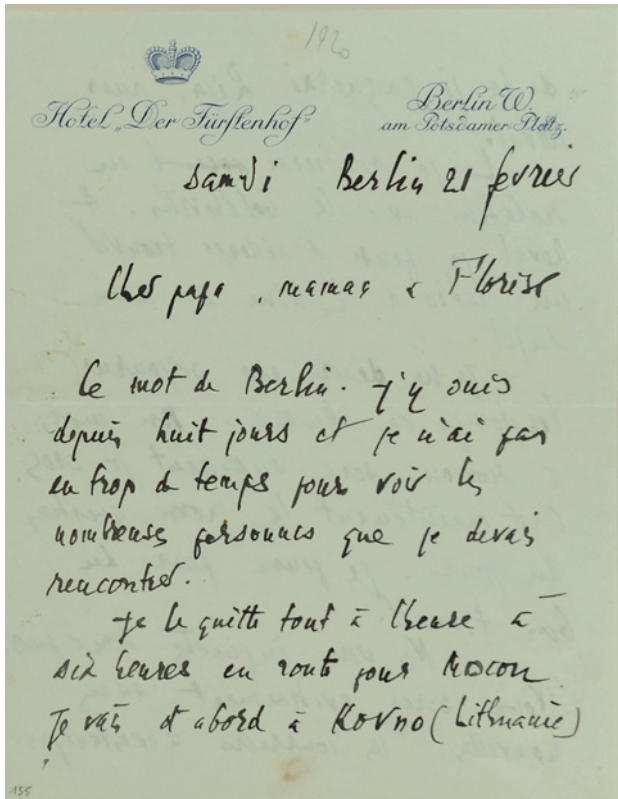 1920
Hotel „Der Fürstenhof"
Berlin W.
am Potsdamer Platz.
samedi Berlin 21 fevrier
Cher papa, maman &
Ce mot de Berlin. J'y suis
depuis huit jours et je n'ai pas
eu trop de temps pour voir les
nombreuses personnes que je devais
rencontrer.
Je le quitte tout à l'heure à
six heures en route pour Moscou
Je vais d'abord à Kovno (Lithuanie)
155